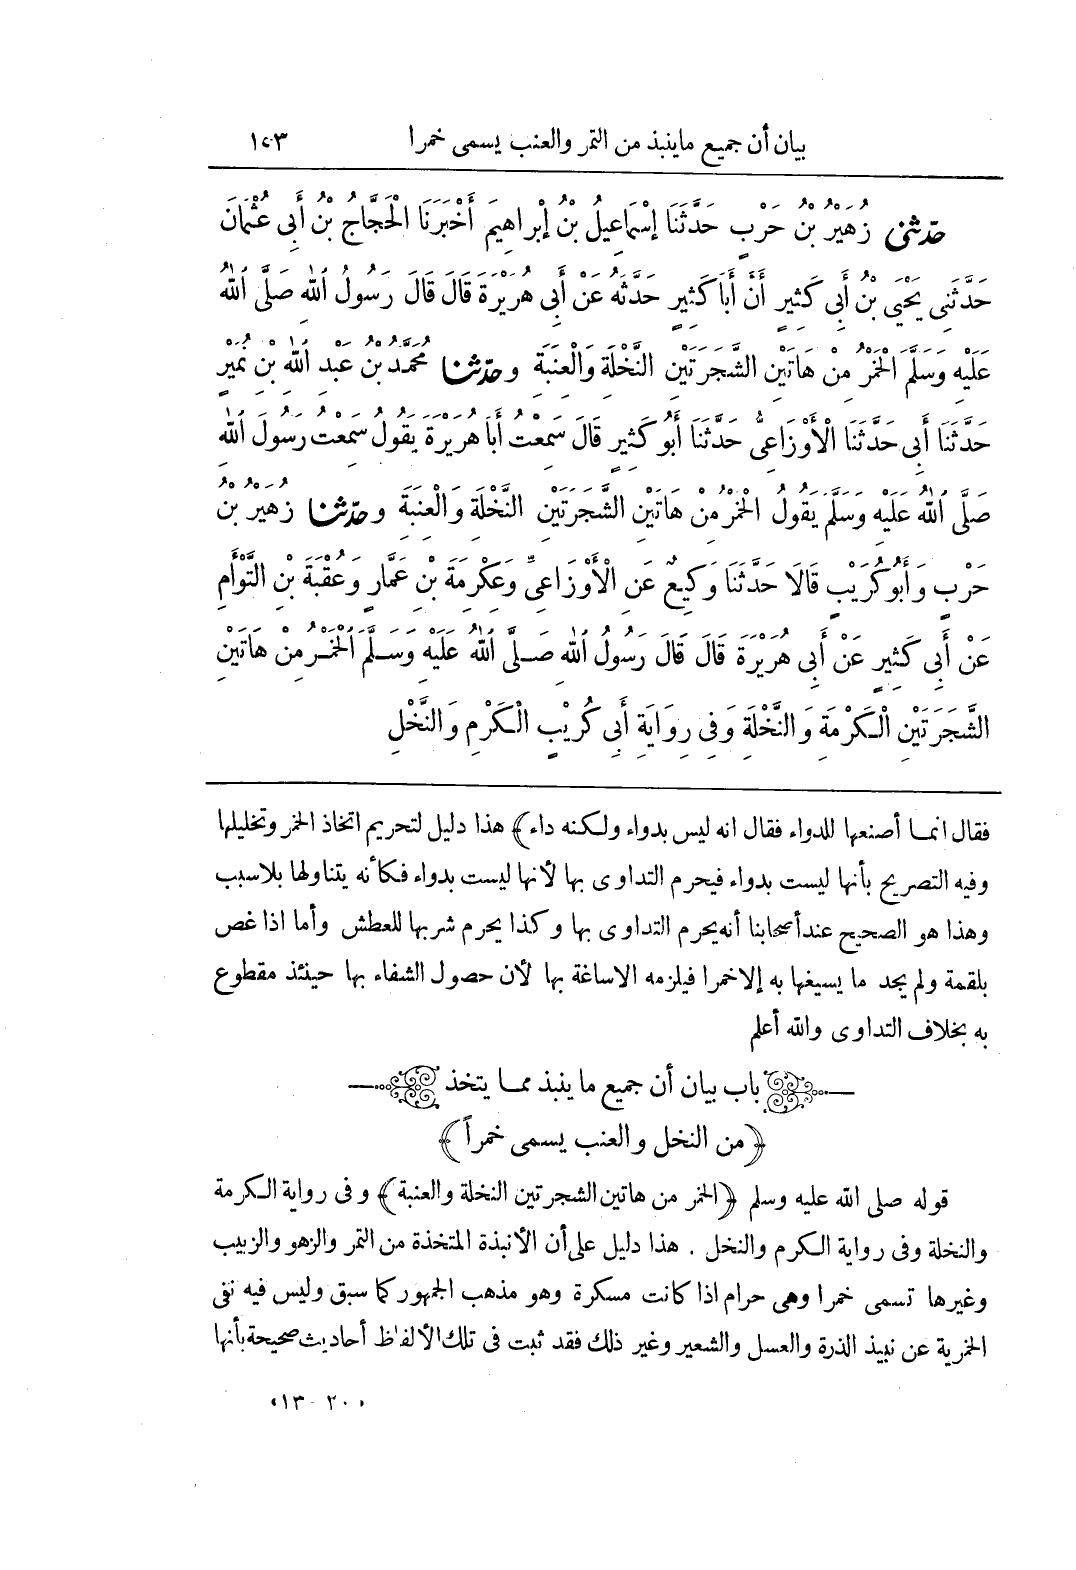 بيان أن جميع ماينبذ من التمر والعنب يسمى خمرا ١٥٣
حدّثنى زُهَيْرُ بْنُ حَرْبٍ حَدَّثَنَا إِسْمَاعِيلُ بْنُ إِبْرَاهِيمَ أَخْبَرَنَا الْحَجَّاجُ بْنُ أَبِى عُثْمَانَ
حَدَّثَنِى يَحْيَى بْنُ أَبِى كَثِيرٍ أَنَّ أَبَا كَثِيرٍ حَدَّثَهُ عَنْ أَبِى هُرَيْرَةَ قَالَ قَالَ رَسُولُ اللهِ صَلَّى اللهُ
عَلَيْهِ وَسَلَّمَ الْخَمْرُ مِنْ هَاتَيْنِ الشَّجَرَتَيْنِ النَّخْلَةِ وَالْعِنَبَةِ وحدّثنا مُحَمَّدُ بْنُ عَبْدِ اللهِ بْنِ نُمَيْرٍ
حَدَّثَنَا أَبِى حَدَّثَنَا الْأَوْزَاعِىُّ حَدَّثَنَا أَبُو كَثِيرٍ قَالَ سَمِعْتُ أَبَا هُرَيْرَةَ يَقُولُ سَمِعْتُ رَسُولَ اللهِ
صَلَّى اللهُ عَلَيْهِ وَسَلَّمَ يَقُولُ الْخَمْرُ مِنْ هَاتَيْنِ الشَّجَرَتَيْنِ النَّخْلَةِ وَالْعِنَبَةِ وحدّثنا زُهَيْرُ بْنُ
حَرْبٍ وَأَبُو كُرَيْبٍ قَالَا حَدَّثَنَا وَكِيعٌ عَنِ الْأَوْزَاعِىِّ وَعِكْرِمَةَ بْنِ عَمَّارٍ وَعُقْبَةَ بْنِ التَّوْأَمِ
عَنْ أَبِى كَثِيرٍ عَنْ أَبِى هُرَيْرَةَ قَالَ قَالَ رَسُولُ اللهِ صَلَّى اللهُ عَلَيْهِ وَسَلَّمَ الْخَمْرُ مِنْ هَاتَيْنِ
الشَّجَرَتَيْنِ الْكَرْمَةِ وَالنَّخْلَةِ وَفِى رِوَايَةِ أَبِى كُرَيْبٍ الْكَرْمِ وَالنَّخْلِ
فقال انما أصنعها للدواء فقال انه ليس بدواء ولكنه داء﴾ هذا دليل لتحريم اتخاذ الخمر وتخليلها
وفيه التصريح بأنها ليست بدواء فيحرم التداوى بها لأنها ليست بدواء فكأنه يتناولها بلاسبب
وهذا هو الصحيح عند أصحابنا أنه يحرم التداوى بها وكذا يحرم شربها للعطش وأما اذا غص
بلقمة ولم يجد ما يسيغها به إلا خمرا فيلزمه الاساغة بها لأن حصول الشفاء بها حينئذ مقطوع
به بخلاف التداوى والله أعلم
باب بيان أن جميع ما ينبذ مما يتخذ
﴿من النخل والعنب يسمى خمراً﴾
قوله صلى الله عليه وسلم ﴿الخمر من هاتين الشجرتين النخلة والعنبة﴾ وفى رواية الكرمة
والنخلة وفى رواية الكرم والنخل . هذا دليل على أن الأنبذة المتخذة من التمر والزهو والزبيب
وغيرها تسمى خمرا وهى حرام اذا كانت مسكرة وهو مذهب الجمهور كما سبق وليس فيه نفى
الخمرية عن نبيذ الذرة والعسل والشعير وغير ذلك فقد ثبت فى تلك الألفاظ أحاديث صحيحة بأنها
«٢٠ - ١٣»